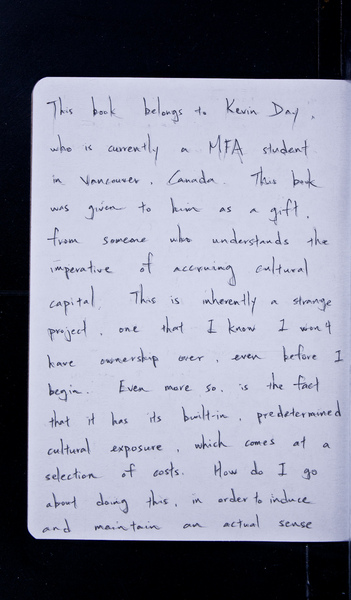 This book belongs to Kevin Day,
who is currently a MFA student
in Vancouver, Canada. This book
was given to him as a gift,
from someone who understands the
imperative of accruing cultural
capital. This is inherently a strange
project, one that I know I won't
have ownership over, even before I
begin. Even more so, is the fact
that it has its built-in, predetermined
cultural exposure, which comes at a
selection of costs. How do I go
about doing this, in order to induce
and maintain an actual sense